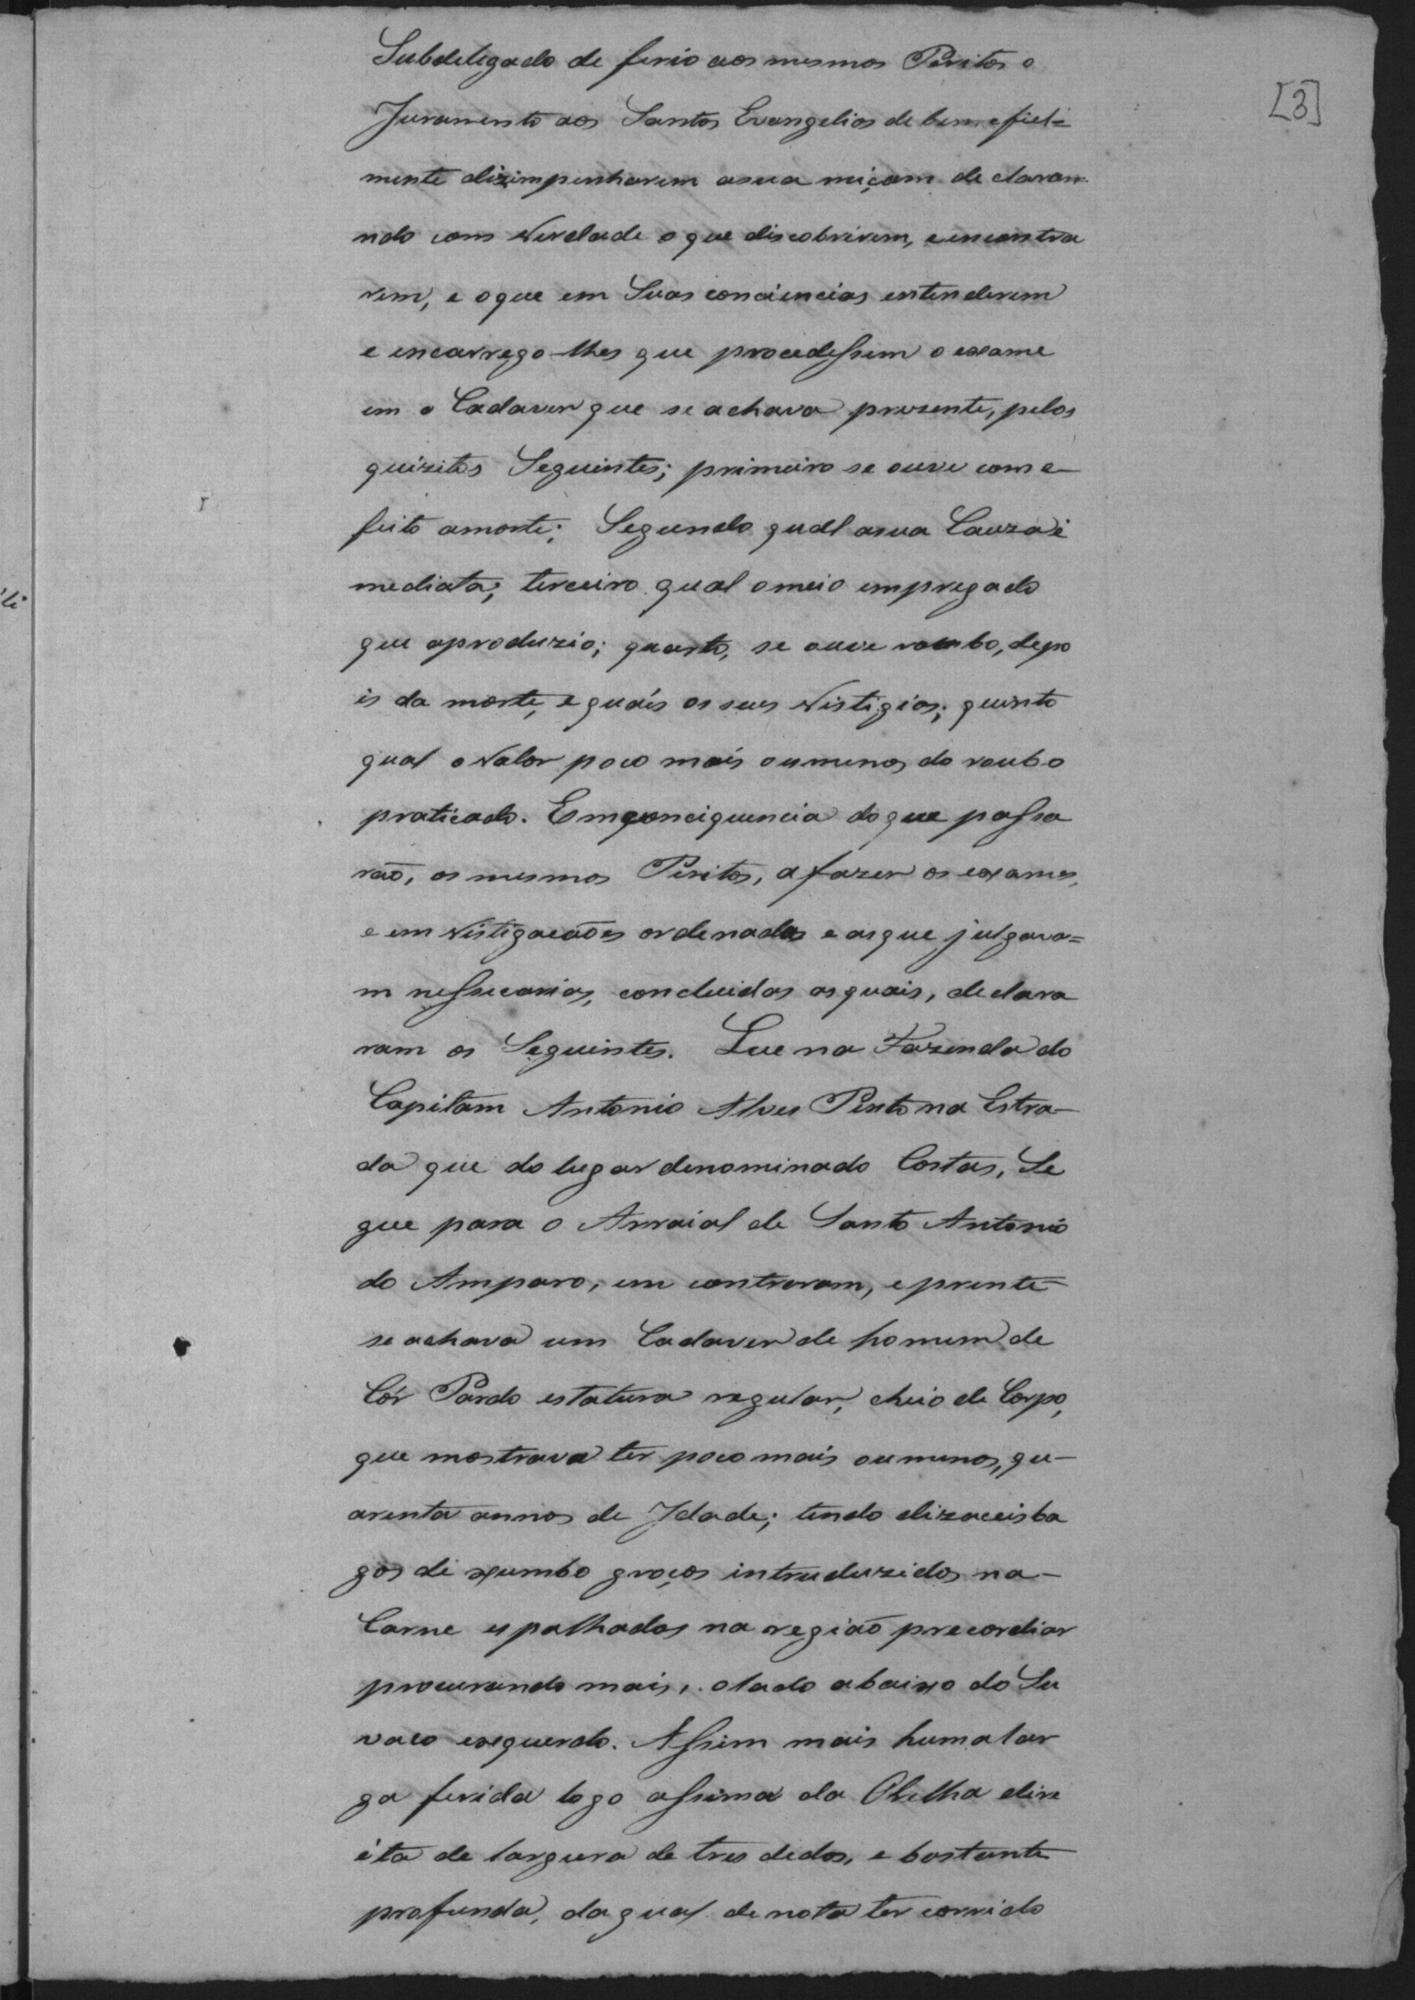 [3]
Subdelegado de ferio aos mesmos Peritos o
Juramento aos Santos Evangelios de bem e fiel=
mente dizimpenharem asua miçam de claran
ndo com Verdade o que discobrirem, e incontra
rem, e oque em Suas conciencias entenderem
e incarrego-lhes que procedessem o exame
em o Cadaver que se achava prezente, pelos
quizitos Seguintes; primeiro se ouve com e-
feito amorte; Segundo qual asua Cauza i
mediata; terceiro qual omeio empregado
que aproduzio; quarto, se ouve roubo, depo
is da morte, e quáis os seus Vistigios; quinto
qual o Valor poco mais oumenos do roubo
praticado. Em conciquencia do que passa
raõ, os mesmos Peritos, a fazer os exames,
e em vistigacaões ordenadas e as que julgava=
m nessecarias, concluidas as quais, declara
ram os Seguintes. Que na Fazenda do
Capitam Antonio Alves Pinto na Estra-
da que do lugar denominado Costas, Se
gue para o Arraial de Santo Antonio
do Amparo, em contraram, e prente
se achava um Cadaver de homem de
Côr Pardo estatura regular, cheio de Corpo,
que mostrava ter poco mais oumenos, qu-
arenta annos de Idade; tendo dizaceis ba
gos de xumbo groços intruduzidos na-
Carne espalhados na região precordiar
procurando mais, olado abaixo do Su
vaco exquerdo. Assim mais huma lar
ga ferida logo assima da Orelha dire
ita de largura de tres dedos, e bastante
profunda, da qual denota ter corrido